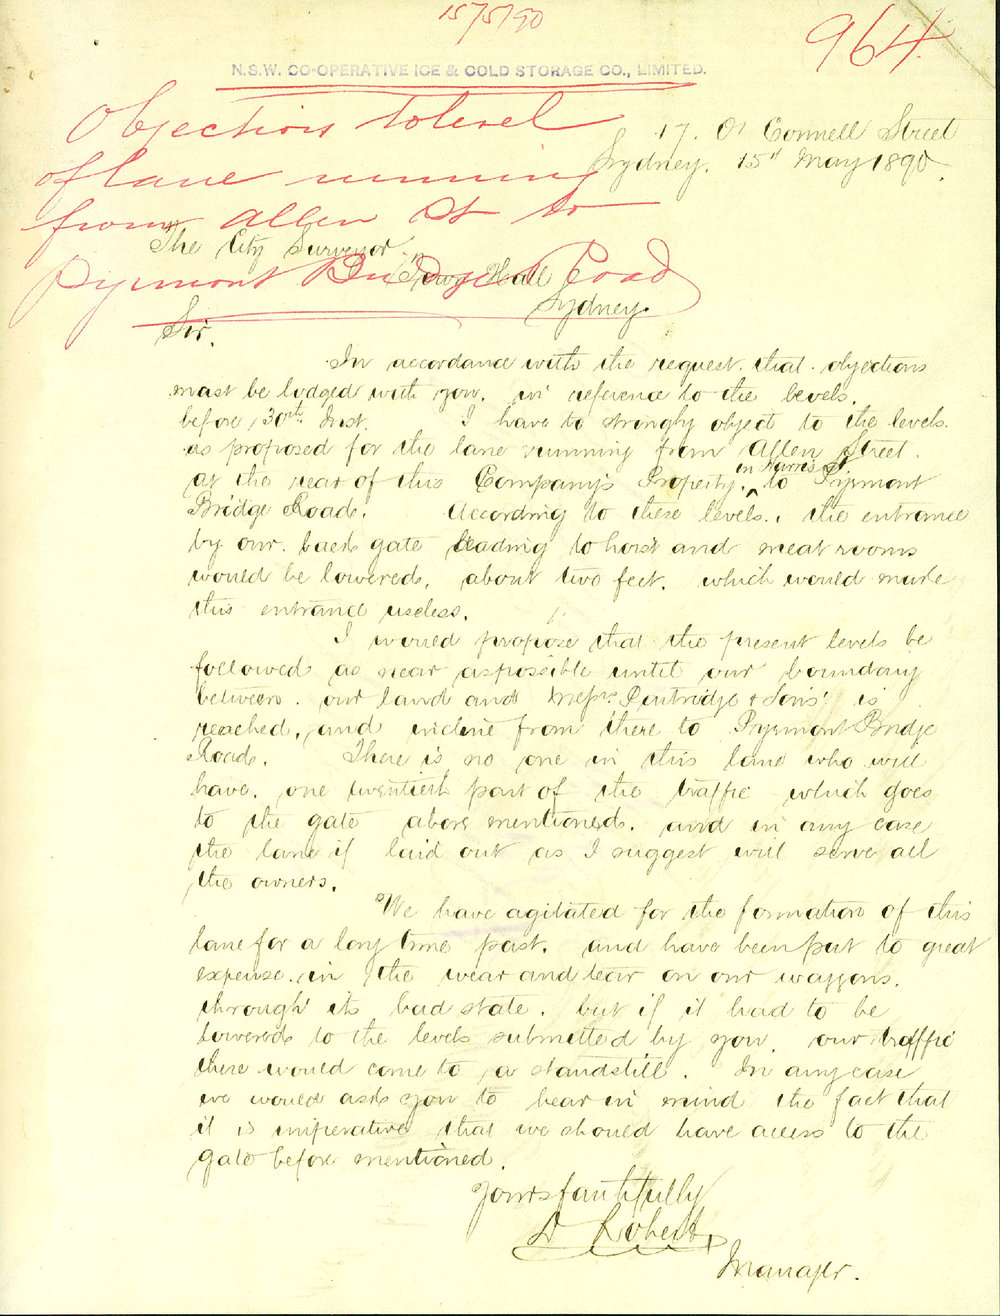 15/5/90
964
N.S.W. CO-OPERATIVE ICE & COLD STORAGE CO., LIMITED.
Objections to level
of lane running
from Allen St to
Pyrmont Bridge Road
17. O'Connell Street
Sydney. 15th May 1890.
The City Surveyor
Town Hall
Sydney.
Sir.
In accordance with the request that objections
must be lodged with you, in reference to the levels,
before 30th Inst. I have to strongly object to the levels
as proposed for the lane running from Allen Street.
at the rear of this Company's Property, in Harris St to Pyrmont
Bridge Road. According to these levels, the entrance
by our back gate leading to hoist and meat rooms
would be lowered, about two feet, which would make
this entrance useless.
I would propose that the present levels be
followed as near as possible until our boundary
between our land and Messrs. Partridge & Sons' is
reached, and incline from there to Pyrmont Bridge
Road. There is no one in this lane who will
have, one twentieth part of the traffic which goes
to the gate above mentioned, and in any case
the lane if laid out as I suggest will serve all
the owners.
We have agitated for the formation of this
lane for a long time past, and have been put to great
expense, in the wear and tear on our waggons,
through its bad state, but if it had to be
lowered to the levels submitted by you, our traffic
there would come to a standstill. In any case
we would ask you to bear in mind the fact that
it is imperative that we should have access to the
gate before mentioned.
Yours faithfully
Robert
Manager.